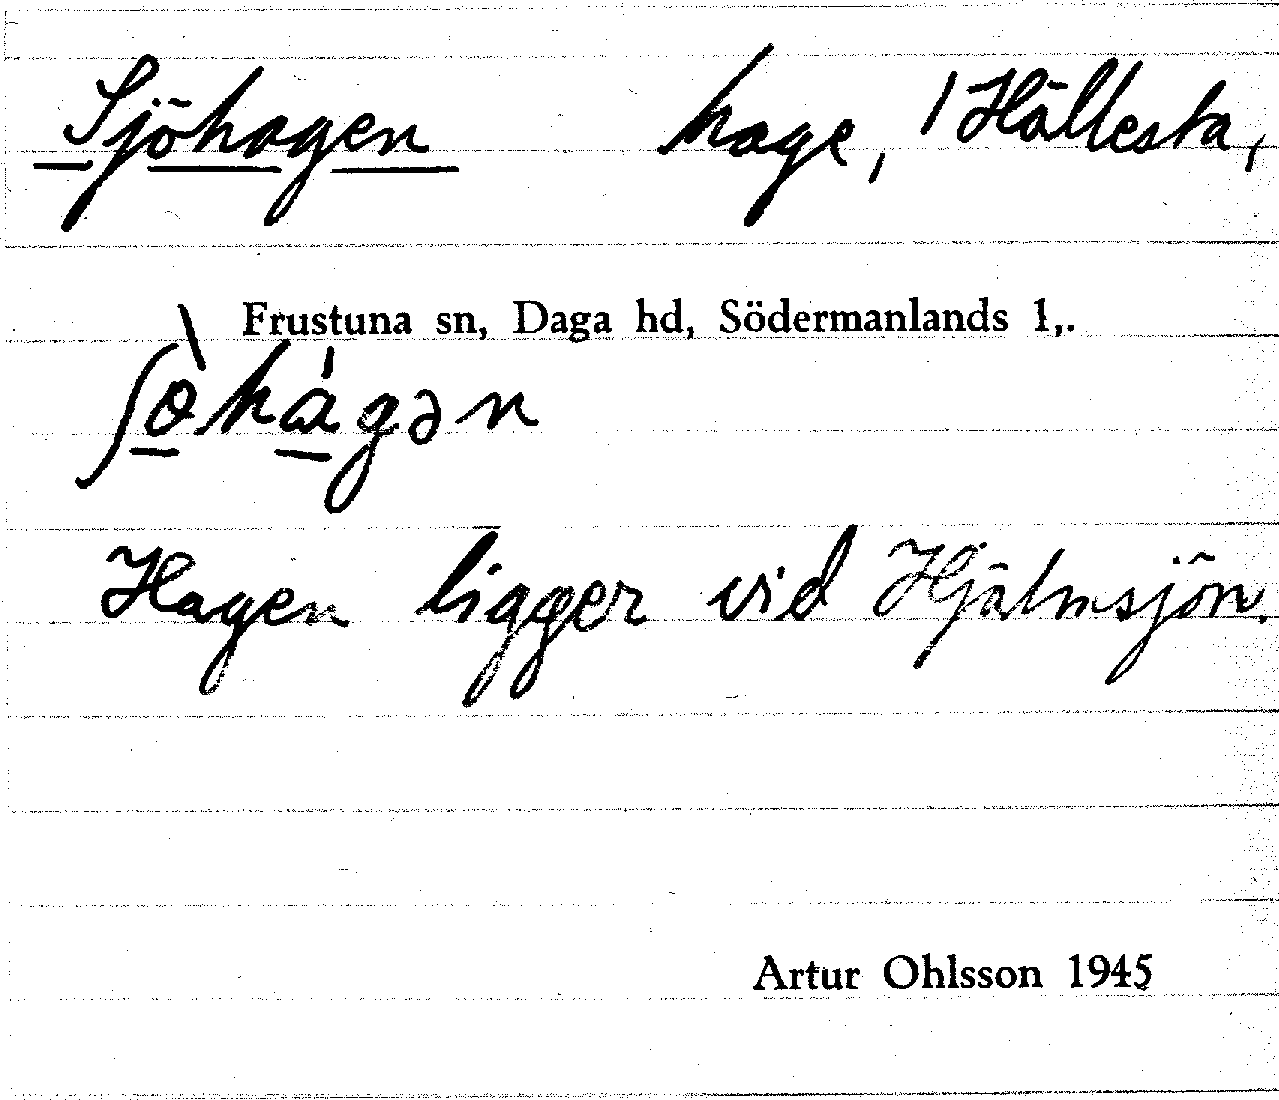 Sjöhagen hage, / Hällesta,
Frustuna sn, Daga hd, Södermanlands l,.
ʃɵ̀hágən
Hagen ligger vid Hjälmsjön.
Artur Ohlsson 1945